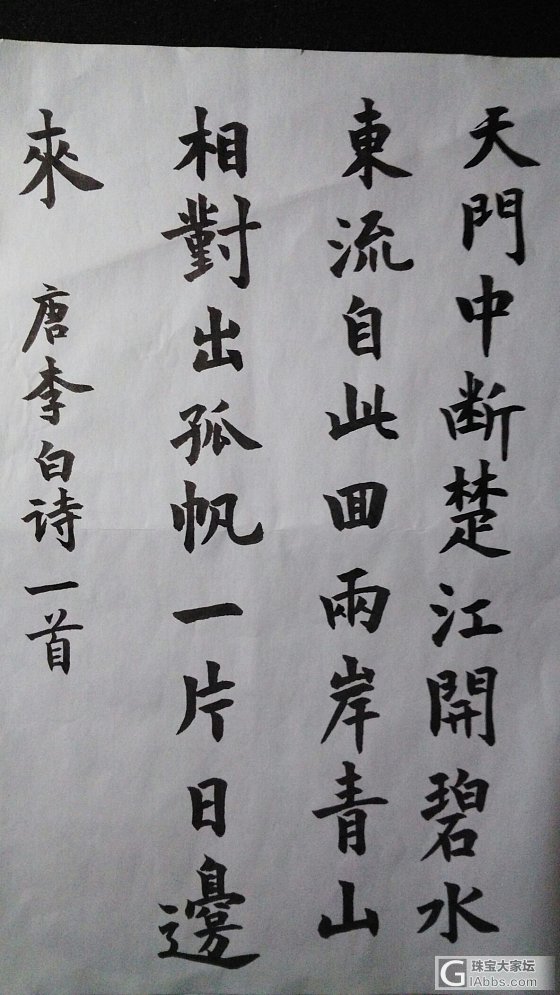 天門中断楚江開碧水
東流自此回兩岸青山
相對出孤帆一片日邊
來 唐李白诗一首
珠宝大家坛
GIAbbs.com